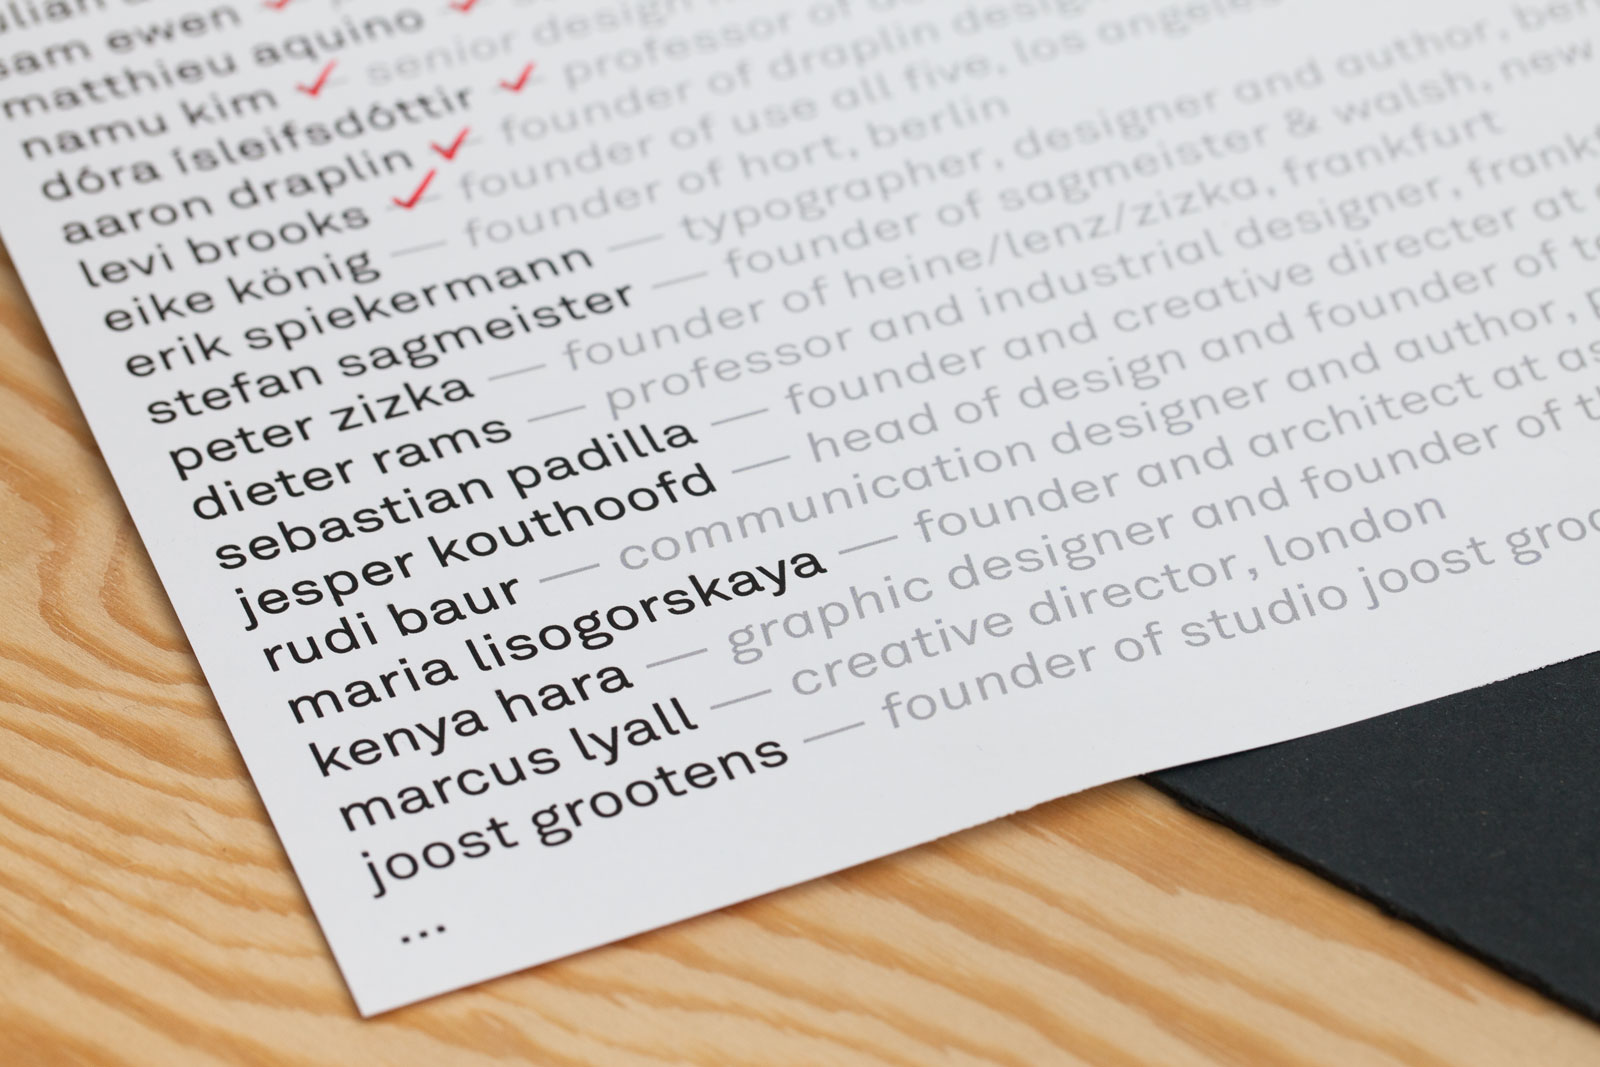 sam ewen
matthieu aquino
namu kim — senior design
dóra ísleifsdóttir — professor of
aaron draplin — founder of draplin design
levi brooks — founder of use all five, los angeles
eike könig — founder of hort, berlin
erik spiekermann — typographer, designer and author, ber
stefan sagmeister — founder of sagmeister & walsh, new
peter zizka — founder of heine/lenz/zizka, frankfurt
dieter rams — professor and industrial designer, frankf
sebastian padilla — founder and creative directer at
jesper kouthoofd — head of design and founder of te
rudi baur — communication designer and author, p
maria lisogorskaya — founder and architect at as
kenya hara — graphic designer and founder of t
marcus lyall — creative director, london
joost grootens — founder of studio joost groo
...